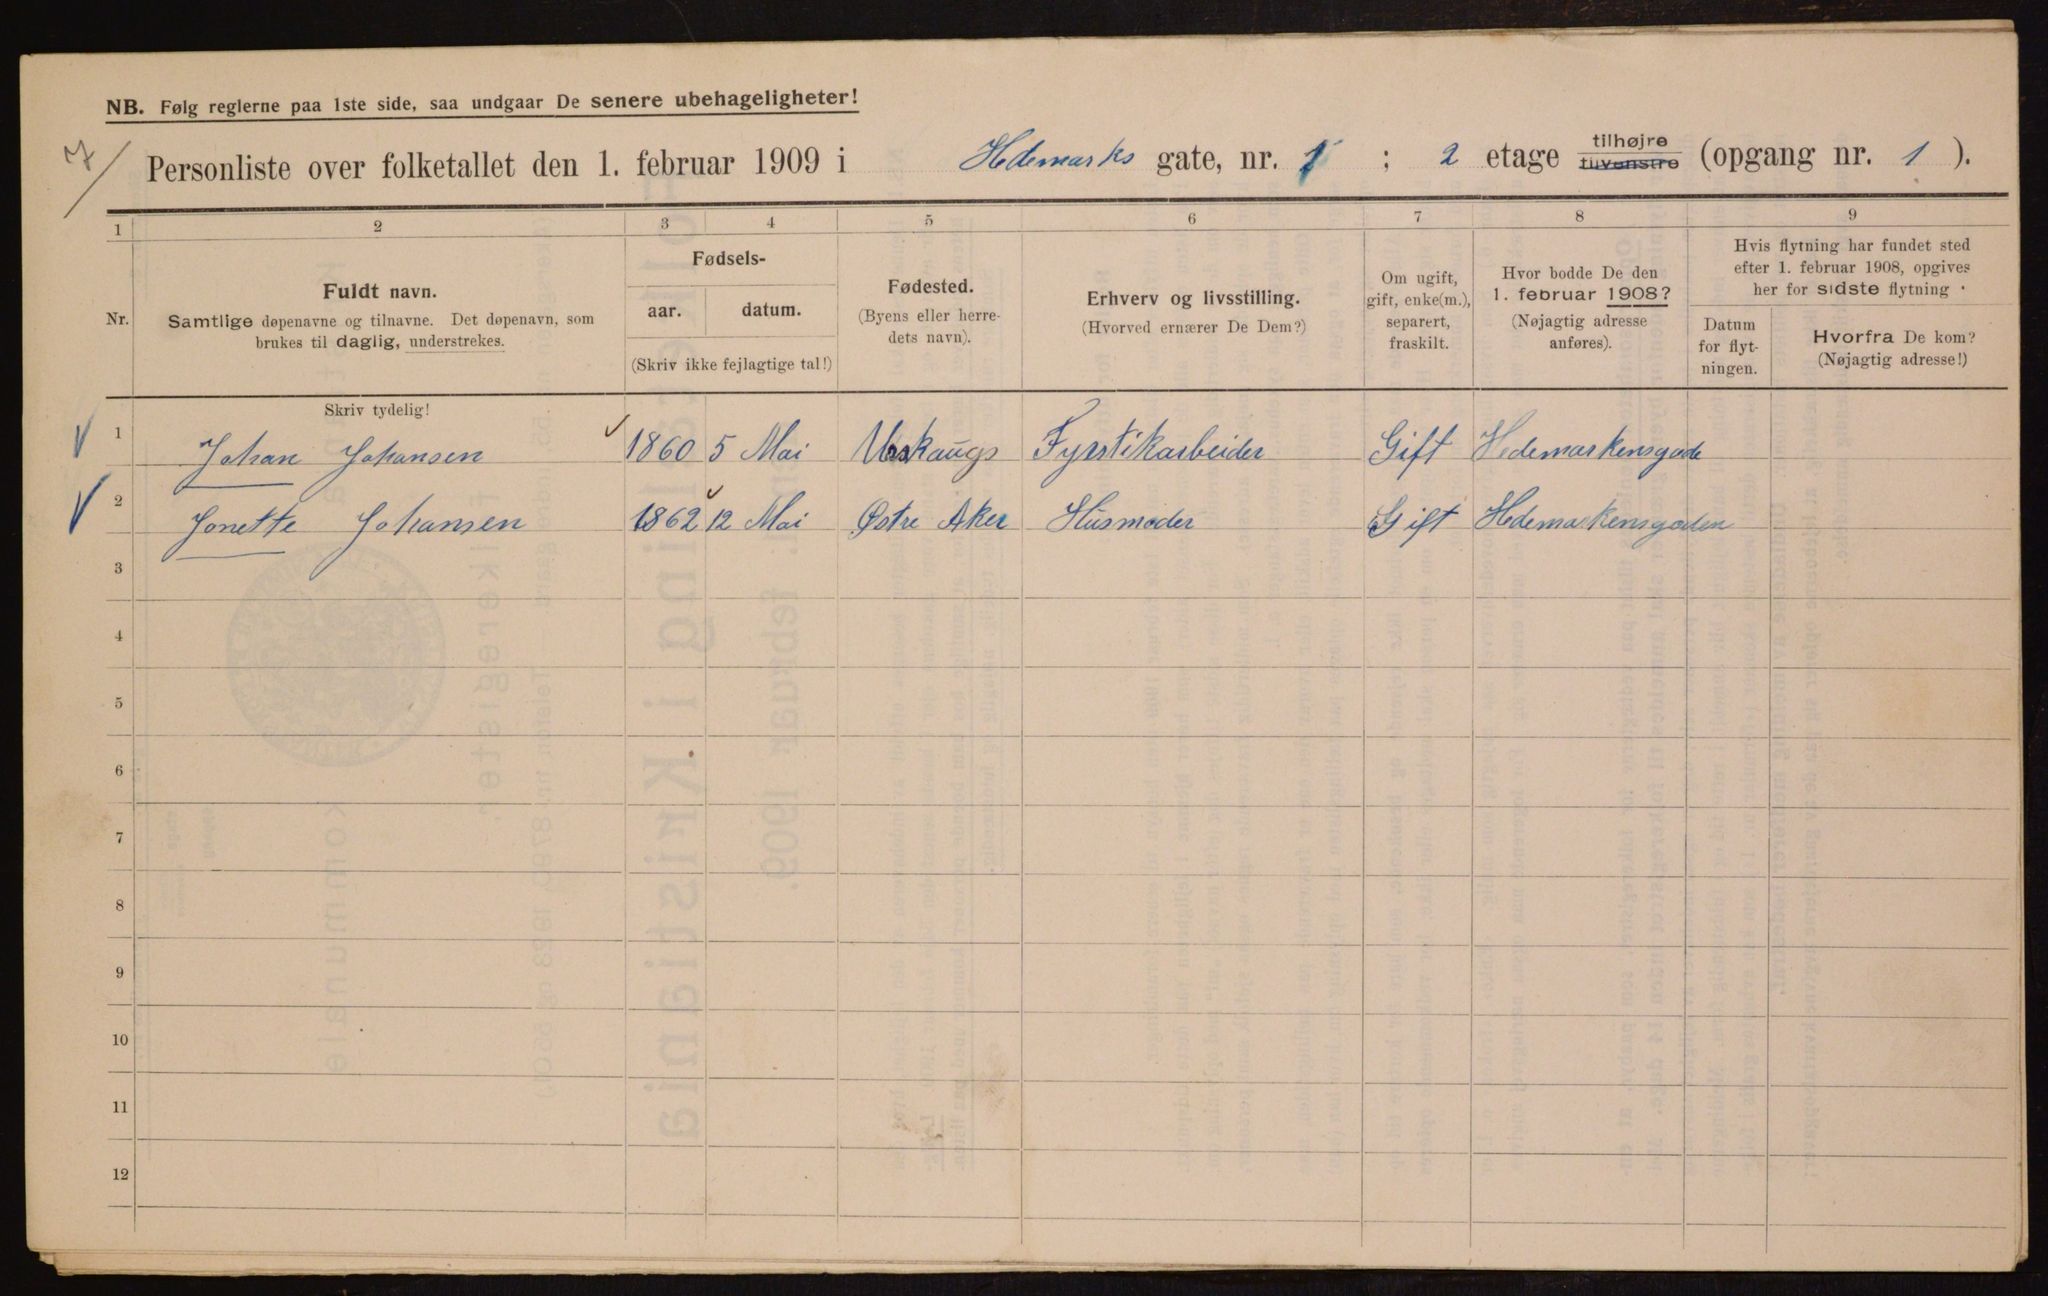 NB. Følg reglerne paa 1ste side, saa undgaar De senere ubehageligheter!
7
Personliste over folketallet den 1. februar 1909 i Hedemarks gate, nr. 1 ; 2 etage tilhøjre tilvenstre (opgang nr. 1 ).
1 2 3 4 5 6 7 8 9
Nr.
Fuldt navn.
Samtlige døpenavne og tilnavne. Det døpenavn, som
brukes til daglig, understrekes.
Fødsels-
aar. datum.
(Skriv ikke fejlagtige tal!)
Fødested.
(Byens eller herre-
dets navn).
Erhverv og livsstilling.
(Hvorved ernærer De Dem?)
Om ugift,
gift, enke(m.),
separert,
fraskilt.
Hvor bodde De den
1. februar 1908?
(Nøjagtig adresse
anføres).
Hvis flytning har fundet sted
efter 1. februar 1908, opgives
her for sidste flytning
Datum
for flyt-
ningen.
Hvorfra De kom?
(Nøjagtig adresse!)
Skriv tydelig!
1 Johan Johansen 1860 5 Mai Urskaugs Fyrstikarbeider Gift Hedemarkensgade
2 Jonette Johansen 1862 12 Mai Østre Aker Husmoder Gift Hedemarkensgaden
3
4
5
6
7
8
9
10
11
12